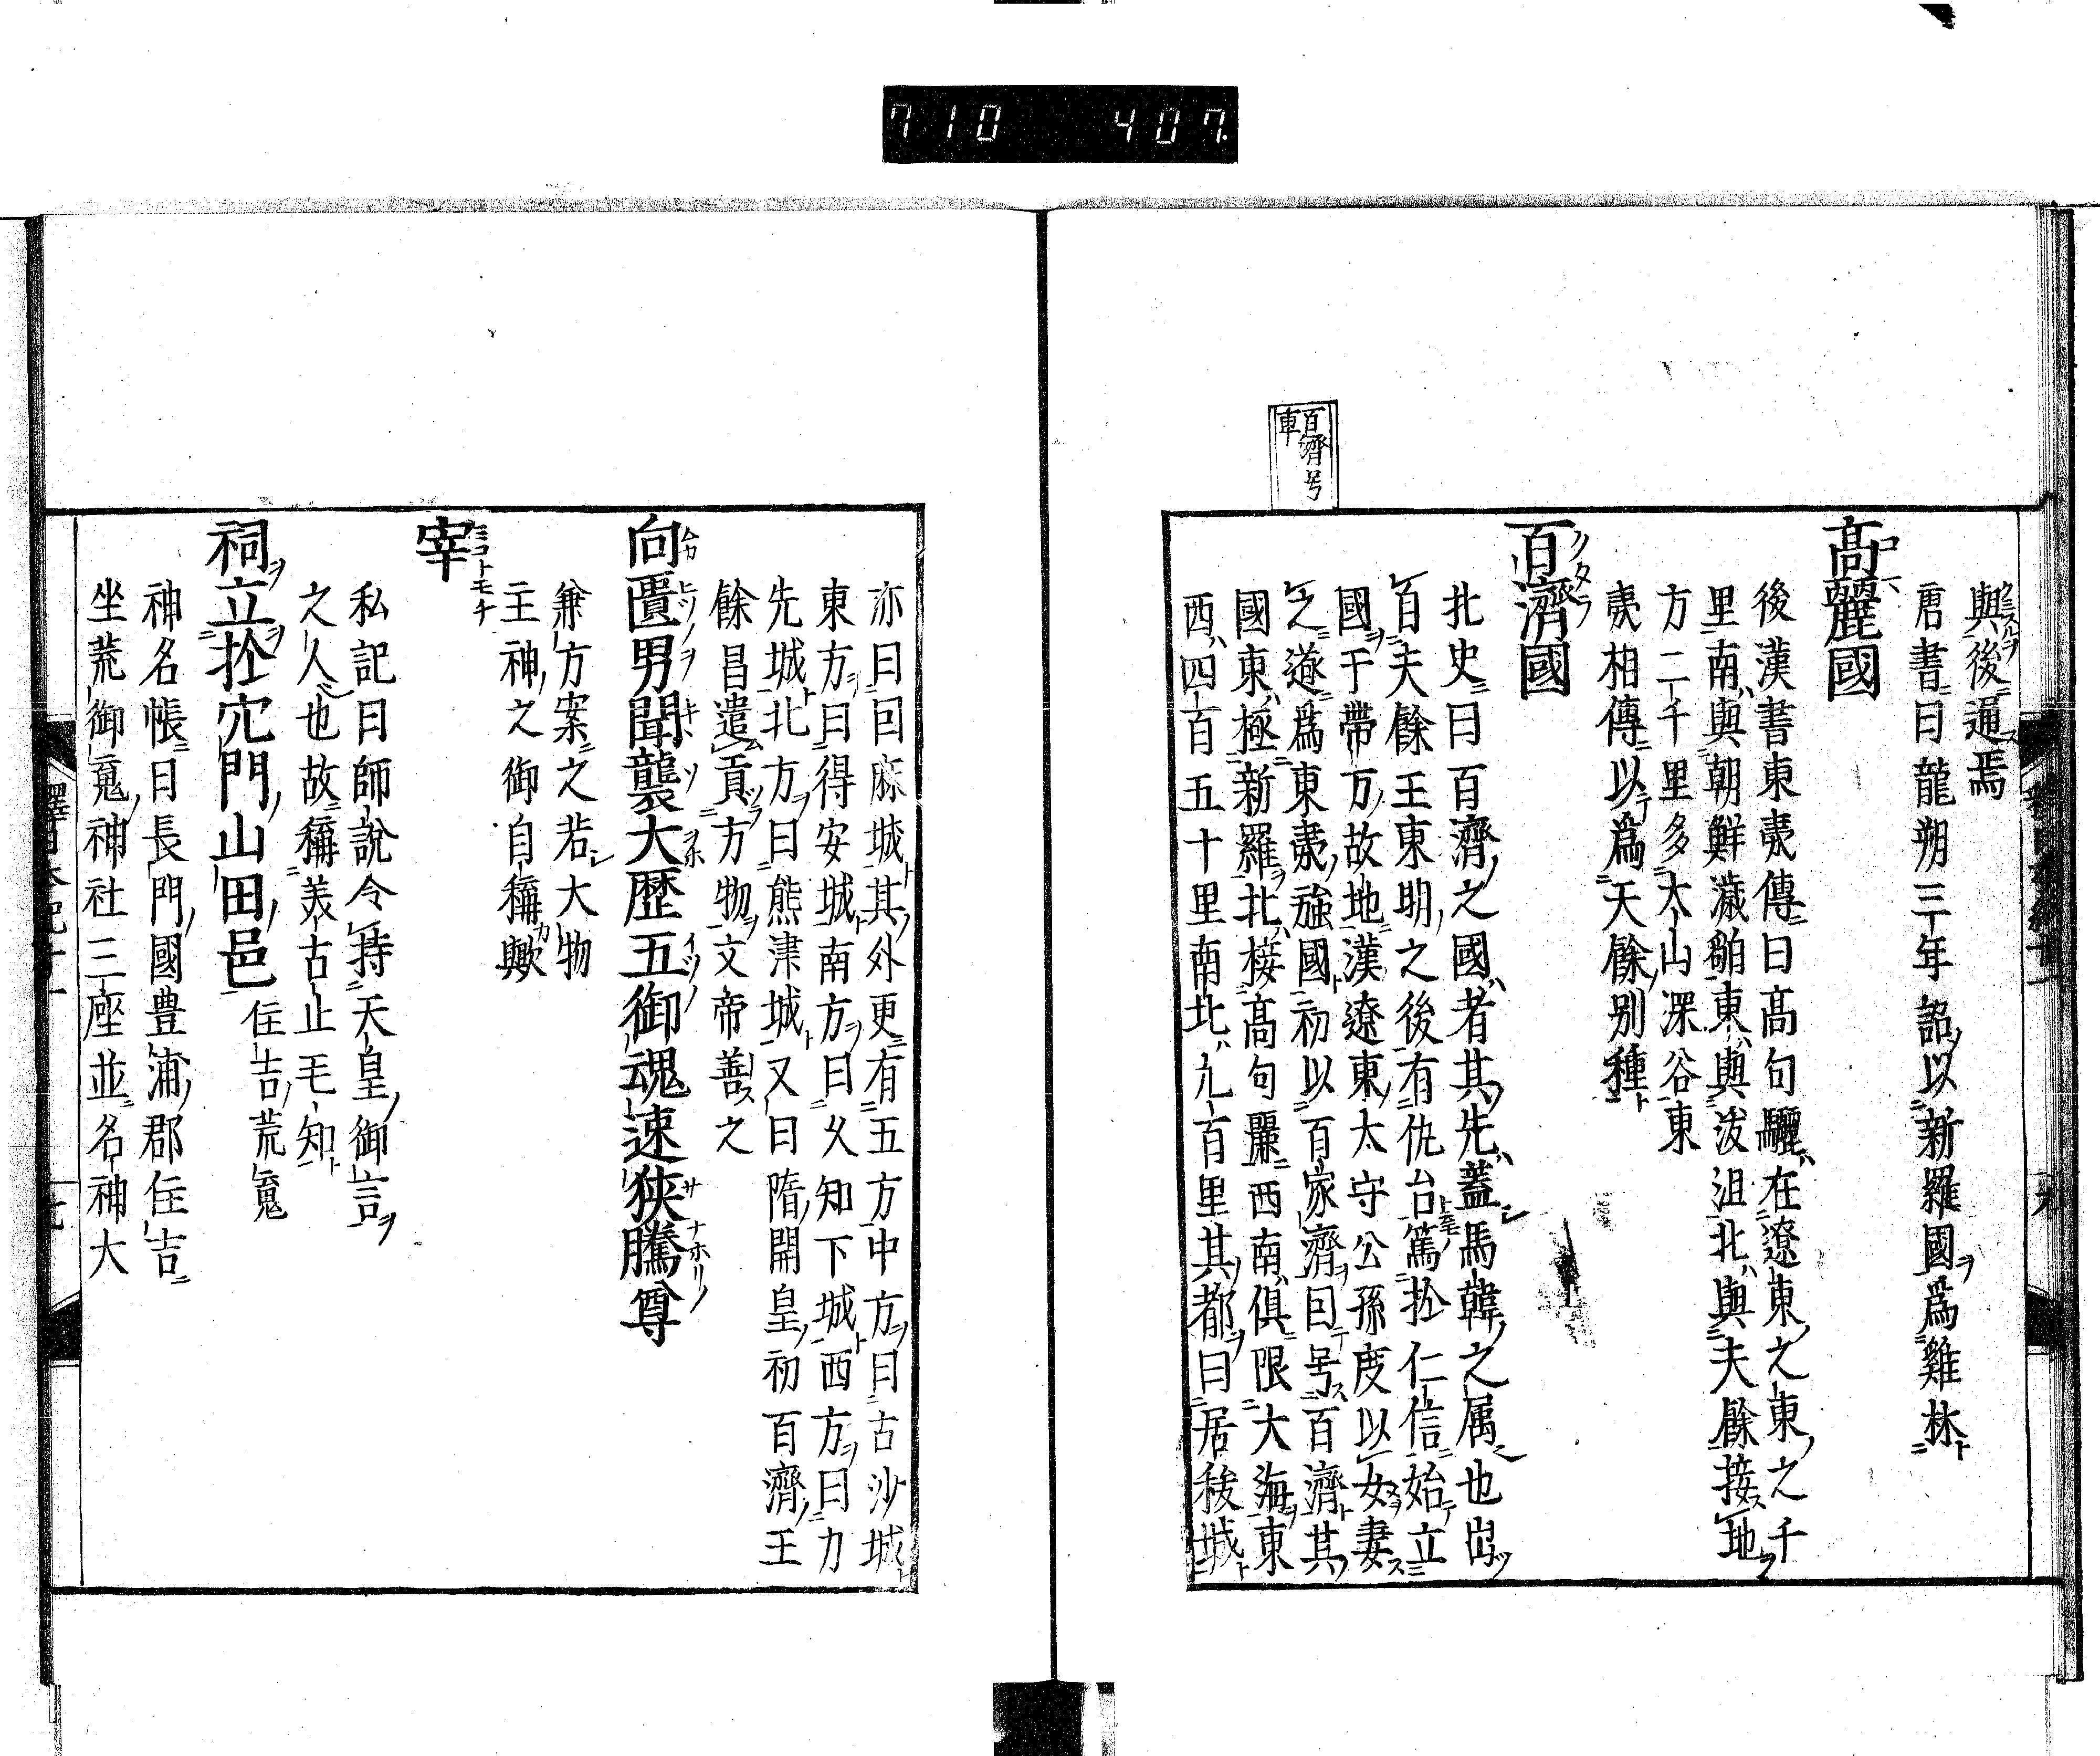 710 407
百濟号
車
與後通焉
唐書曰龍朔三年詔以新羅國爲雞林
高麗國
後漢書東夷傳曰高句驪在遼東之東之千
里南與朝鮮濊貊東與沃沮北與夫餘接地
方二千里多大山深谷東
夷相傳以爲天餘別種
百濟國
北史曰百濟之國者其先蓋馬韓之属也出
自夫餘王東明之後有仇台篤於仁信始立
國于帶方故地漢遼東太守公孫度以女妻
之遂爲東夷強國初以百家濟曰号百濟其
國東極新羅北接高句麗西南俱限大海東
西四百五十里南北九百里其都曰居秡城
亦曰回麻城其外更有五方中方曰古沙城
東方曰得安城南方曰久知下城西方曰力
先城北方曰熊津城又曰隋開皇初百濟王
餘昌遣貢方物文帝善之
向匱男聞襲大歴五御魂速狹騰尊
兼方案之若大物
主神之御自稱歟
宰
私記曰師說令持天皇御言
之人也故稱美古止毛知
祠立於穴門山田邑
住吉荒䰟
神名帳曰長門國豊浦郡住吉
坐荒御䰟神社三座並名神大